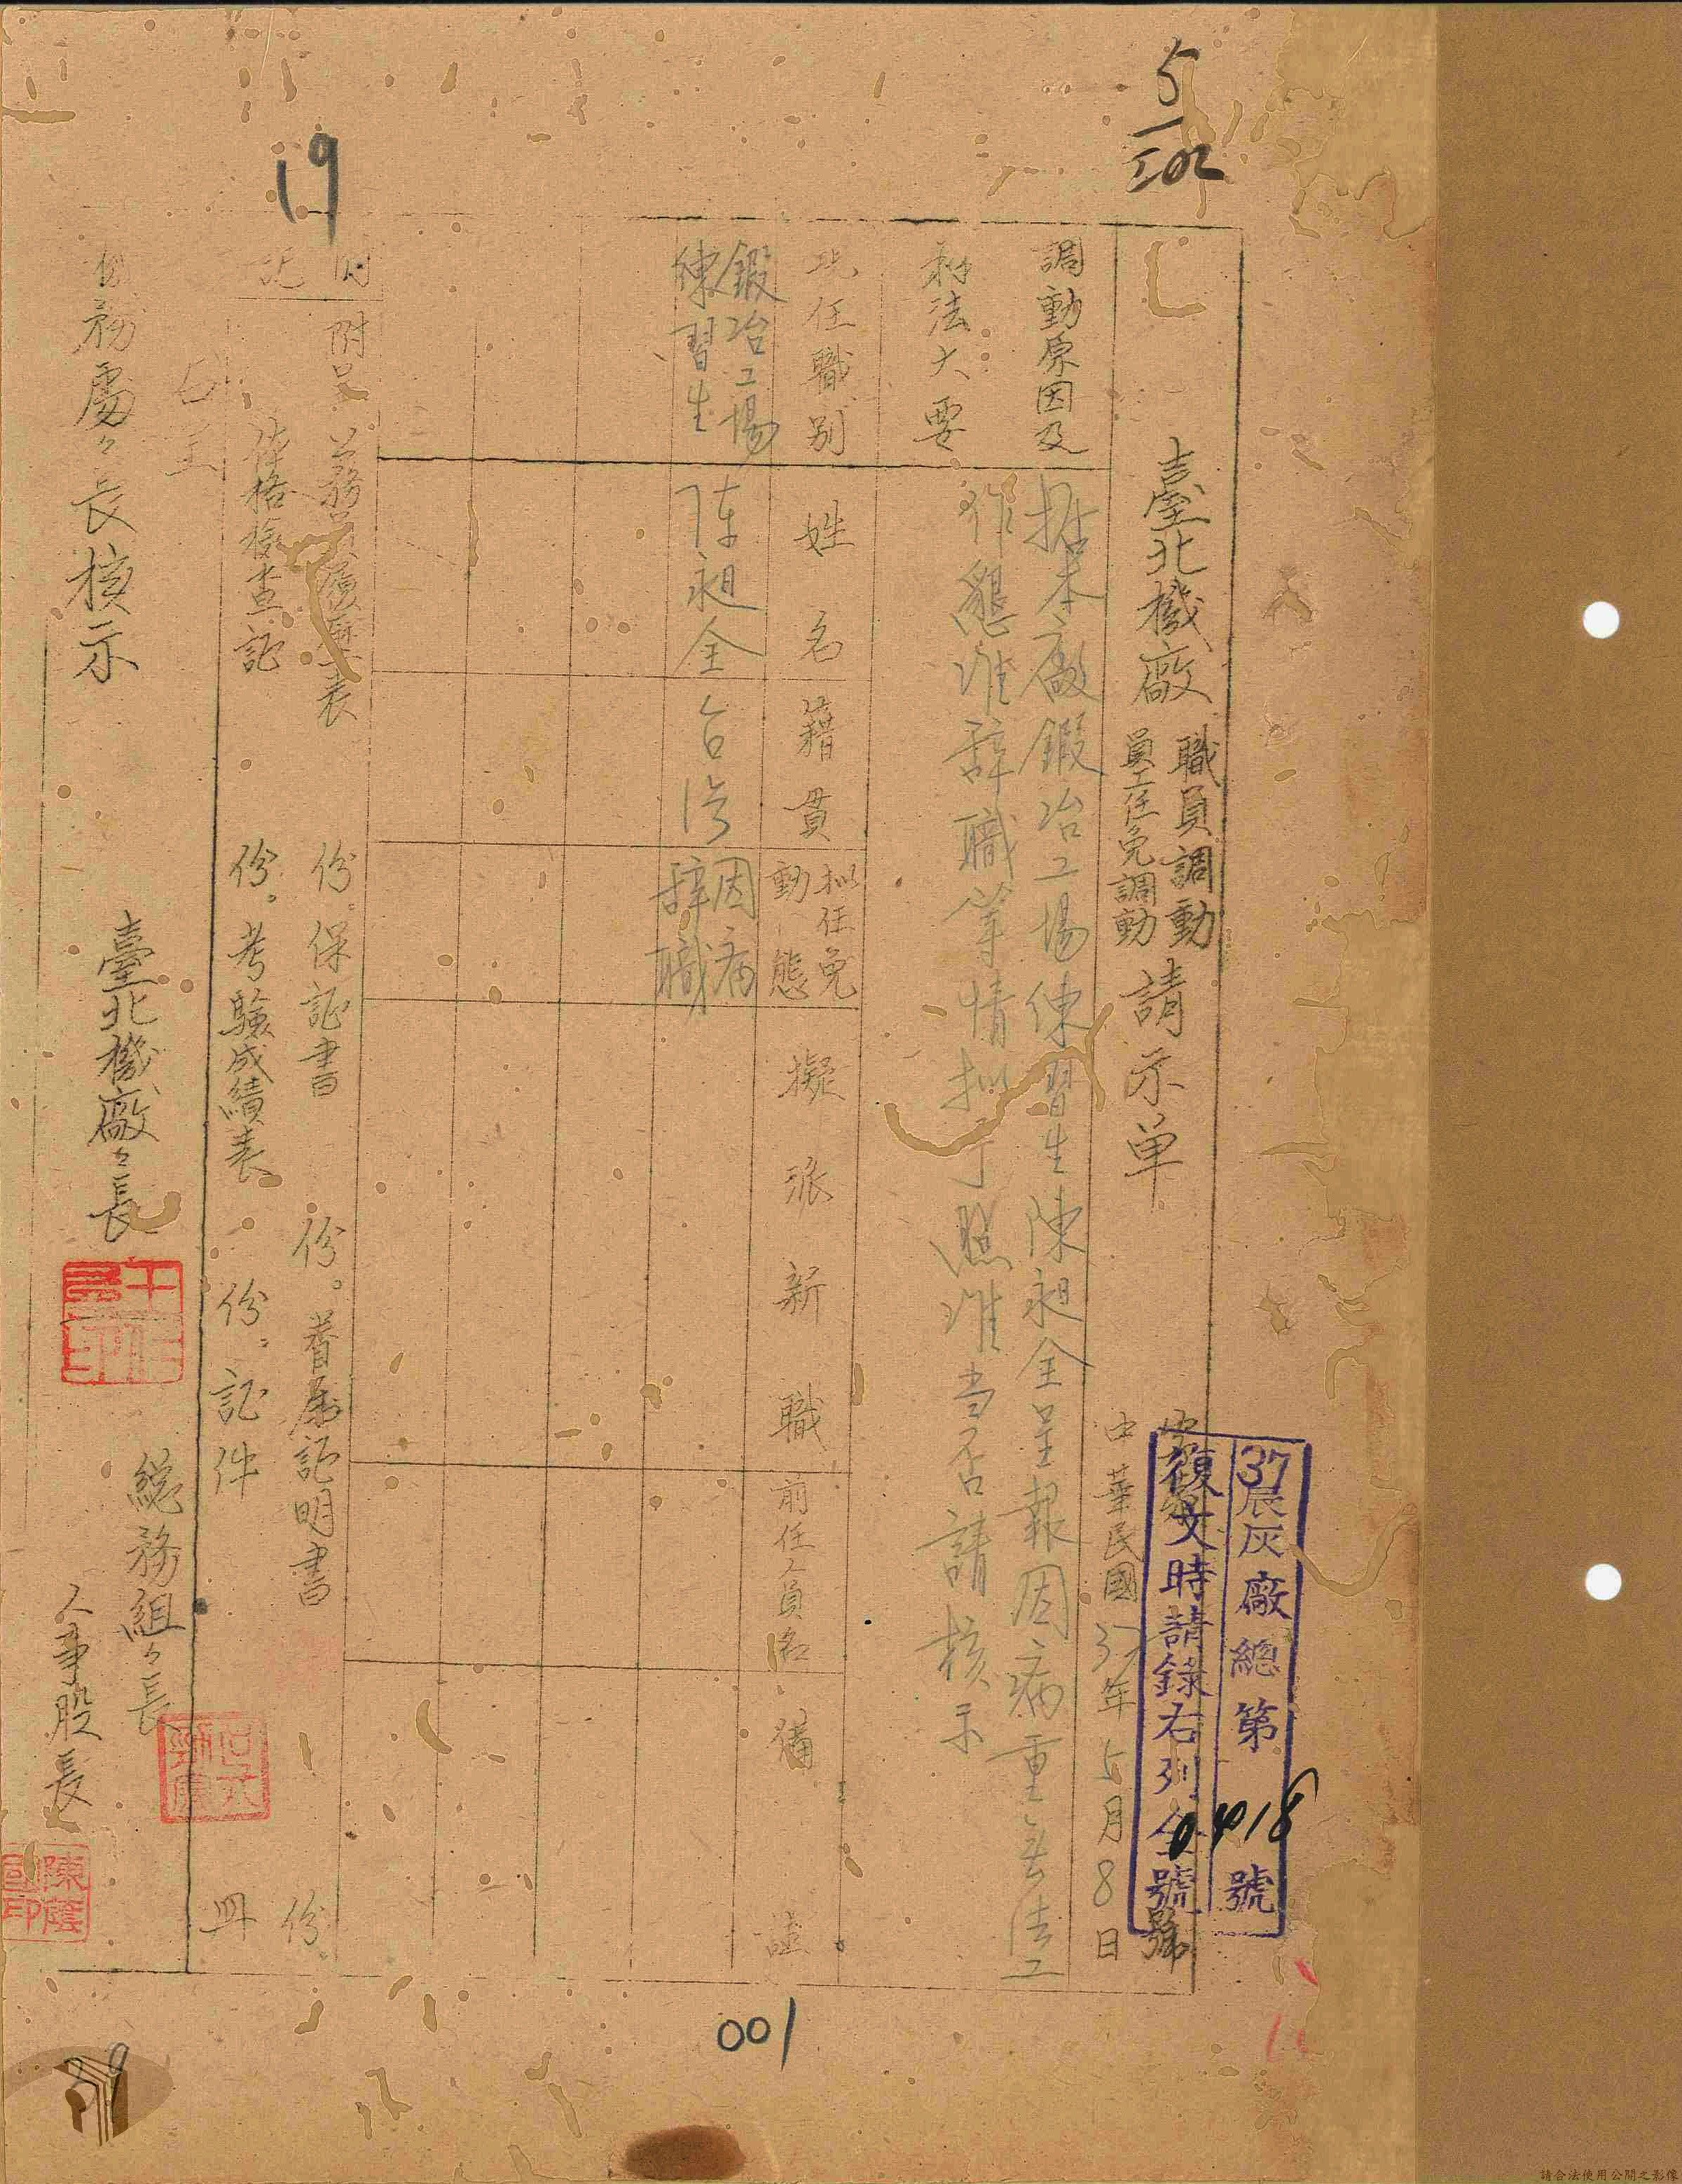 5/102
19
37辰灰廠總第0418號
復文時請錄右列全號
號
臺北機廠
職員調動
員工任免調動
請示单
中華民國37年5月8日
調動原因及
利法大要
拠本廠鍜冶工場練習生陳昶全呈報因病重無法工
作懇准辞職等情拟予照准当否請核示
現任職別
姓名
籍貫
拟任免
動態
擬派新職
前任人員名
備註
鍜冶工場
練習生
陳昶全
台湾
因病
辞職
附
記
附呈
公務員履歷表
份。保証書
份。眷屬証明書
份。
体格檢查証
份。考驗成績表
份。証件
冊
右呈
務處々長核示
臺北機廠々長
総務組々長
人事股長
001
19
請合法使用公開之影像